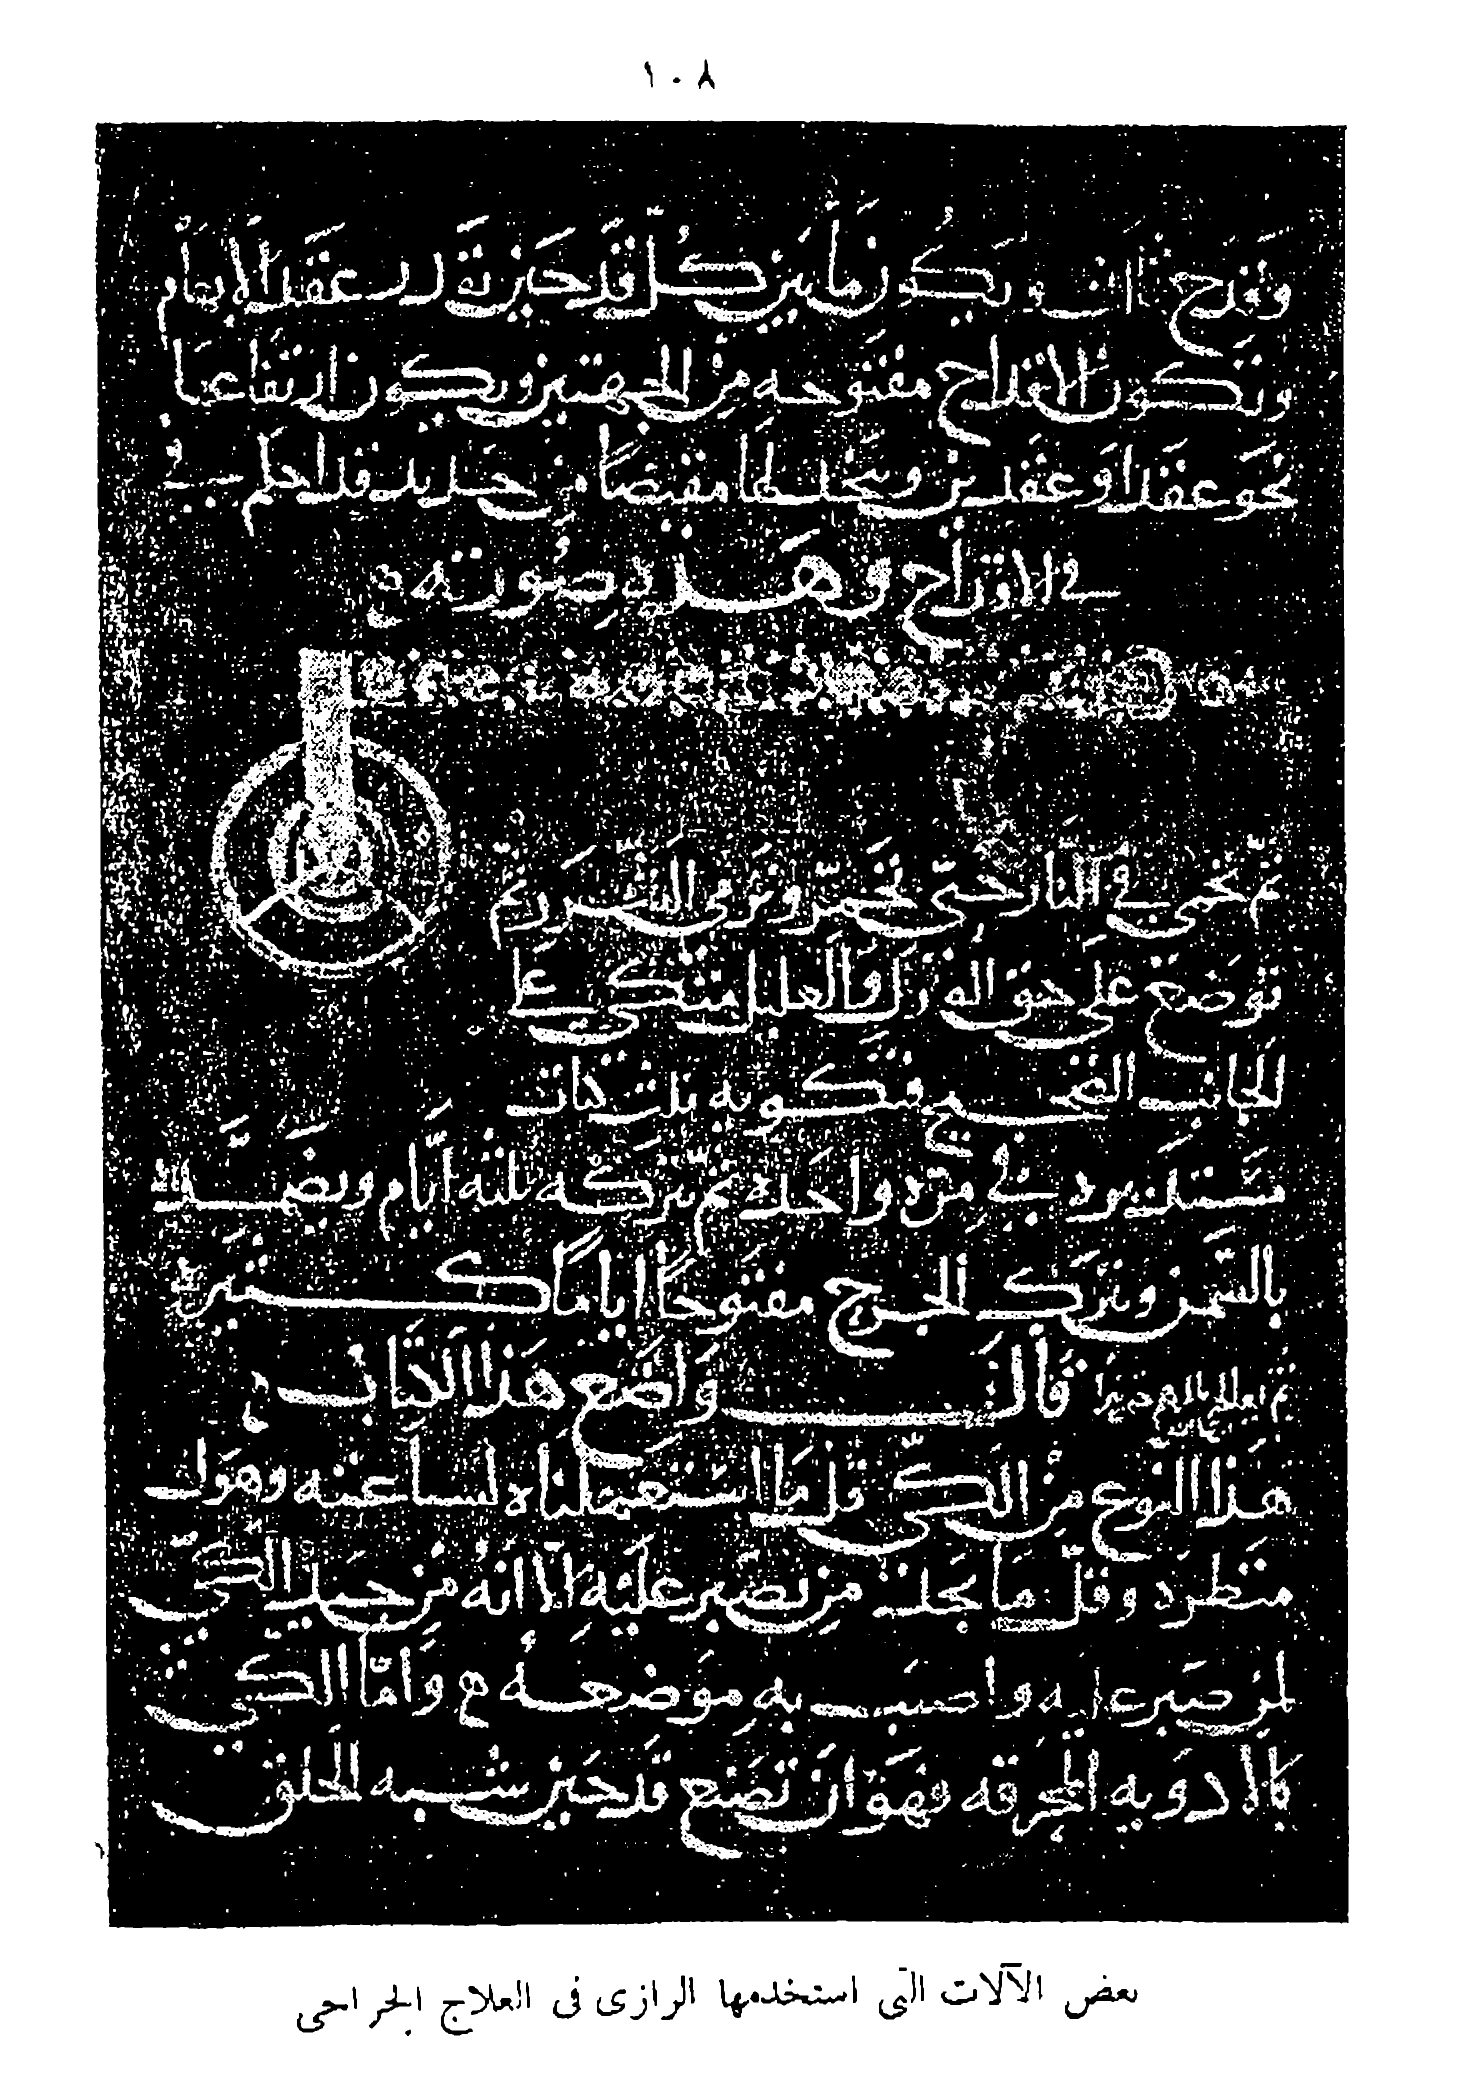 ١٠٨
وقدح ويكون ما بين كل قدحين قدر عقد الابهام
وتكون الاقداح مفتوحه من الجهتين ويكون ارتفاعها
نحو عقد او عقدين ويتخذ لها مقبضا من حديد قد احكم في
في الاقداح وهذه صورته
ثم تحمى في النار حتى تحمر وترمى الشرر ثم
توضع على حق الورك والعليل متكئ على
الجانب الصحيح فتكويه ثلث كيات
مستديره في مرة واحده ثم تتركه ثلثه ايام ويضمد
بالسمن وتترك الجرح مفتوحا اياما كثيره
ثم يعالج بالمرهم قال واضع هذا الكتاب
هذا النوع من الكي قل ما استعملناه لشاعته وهول
منظره وقل ما نجد من يصبر عليه الا انه من جيد الكي
لمن صبر عليه واصيب به موضعه واما الكي
بالادويه المحرقه فهو ان تصنع قدحين شبه الحلق
بعض الآلات التى استخدمها الرازى فى العلاج الجراحى